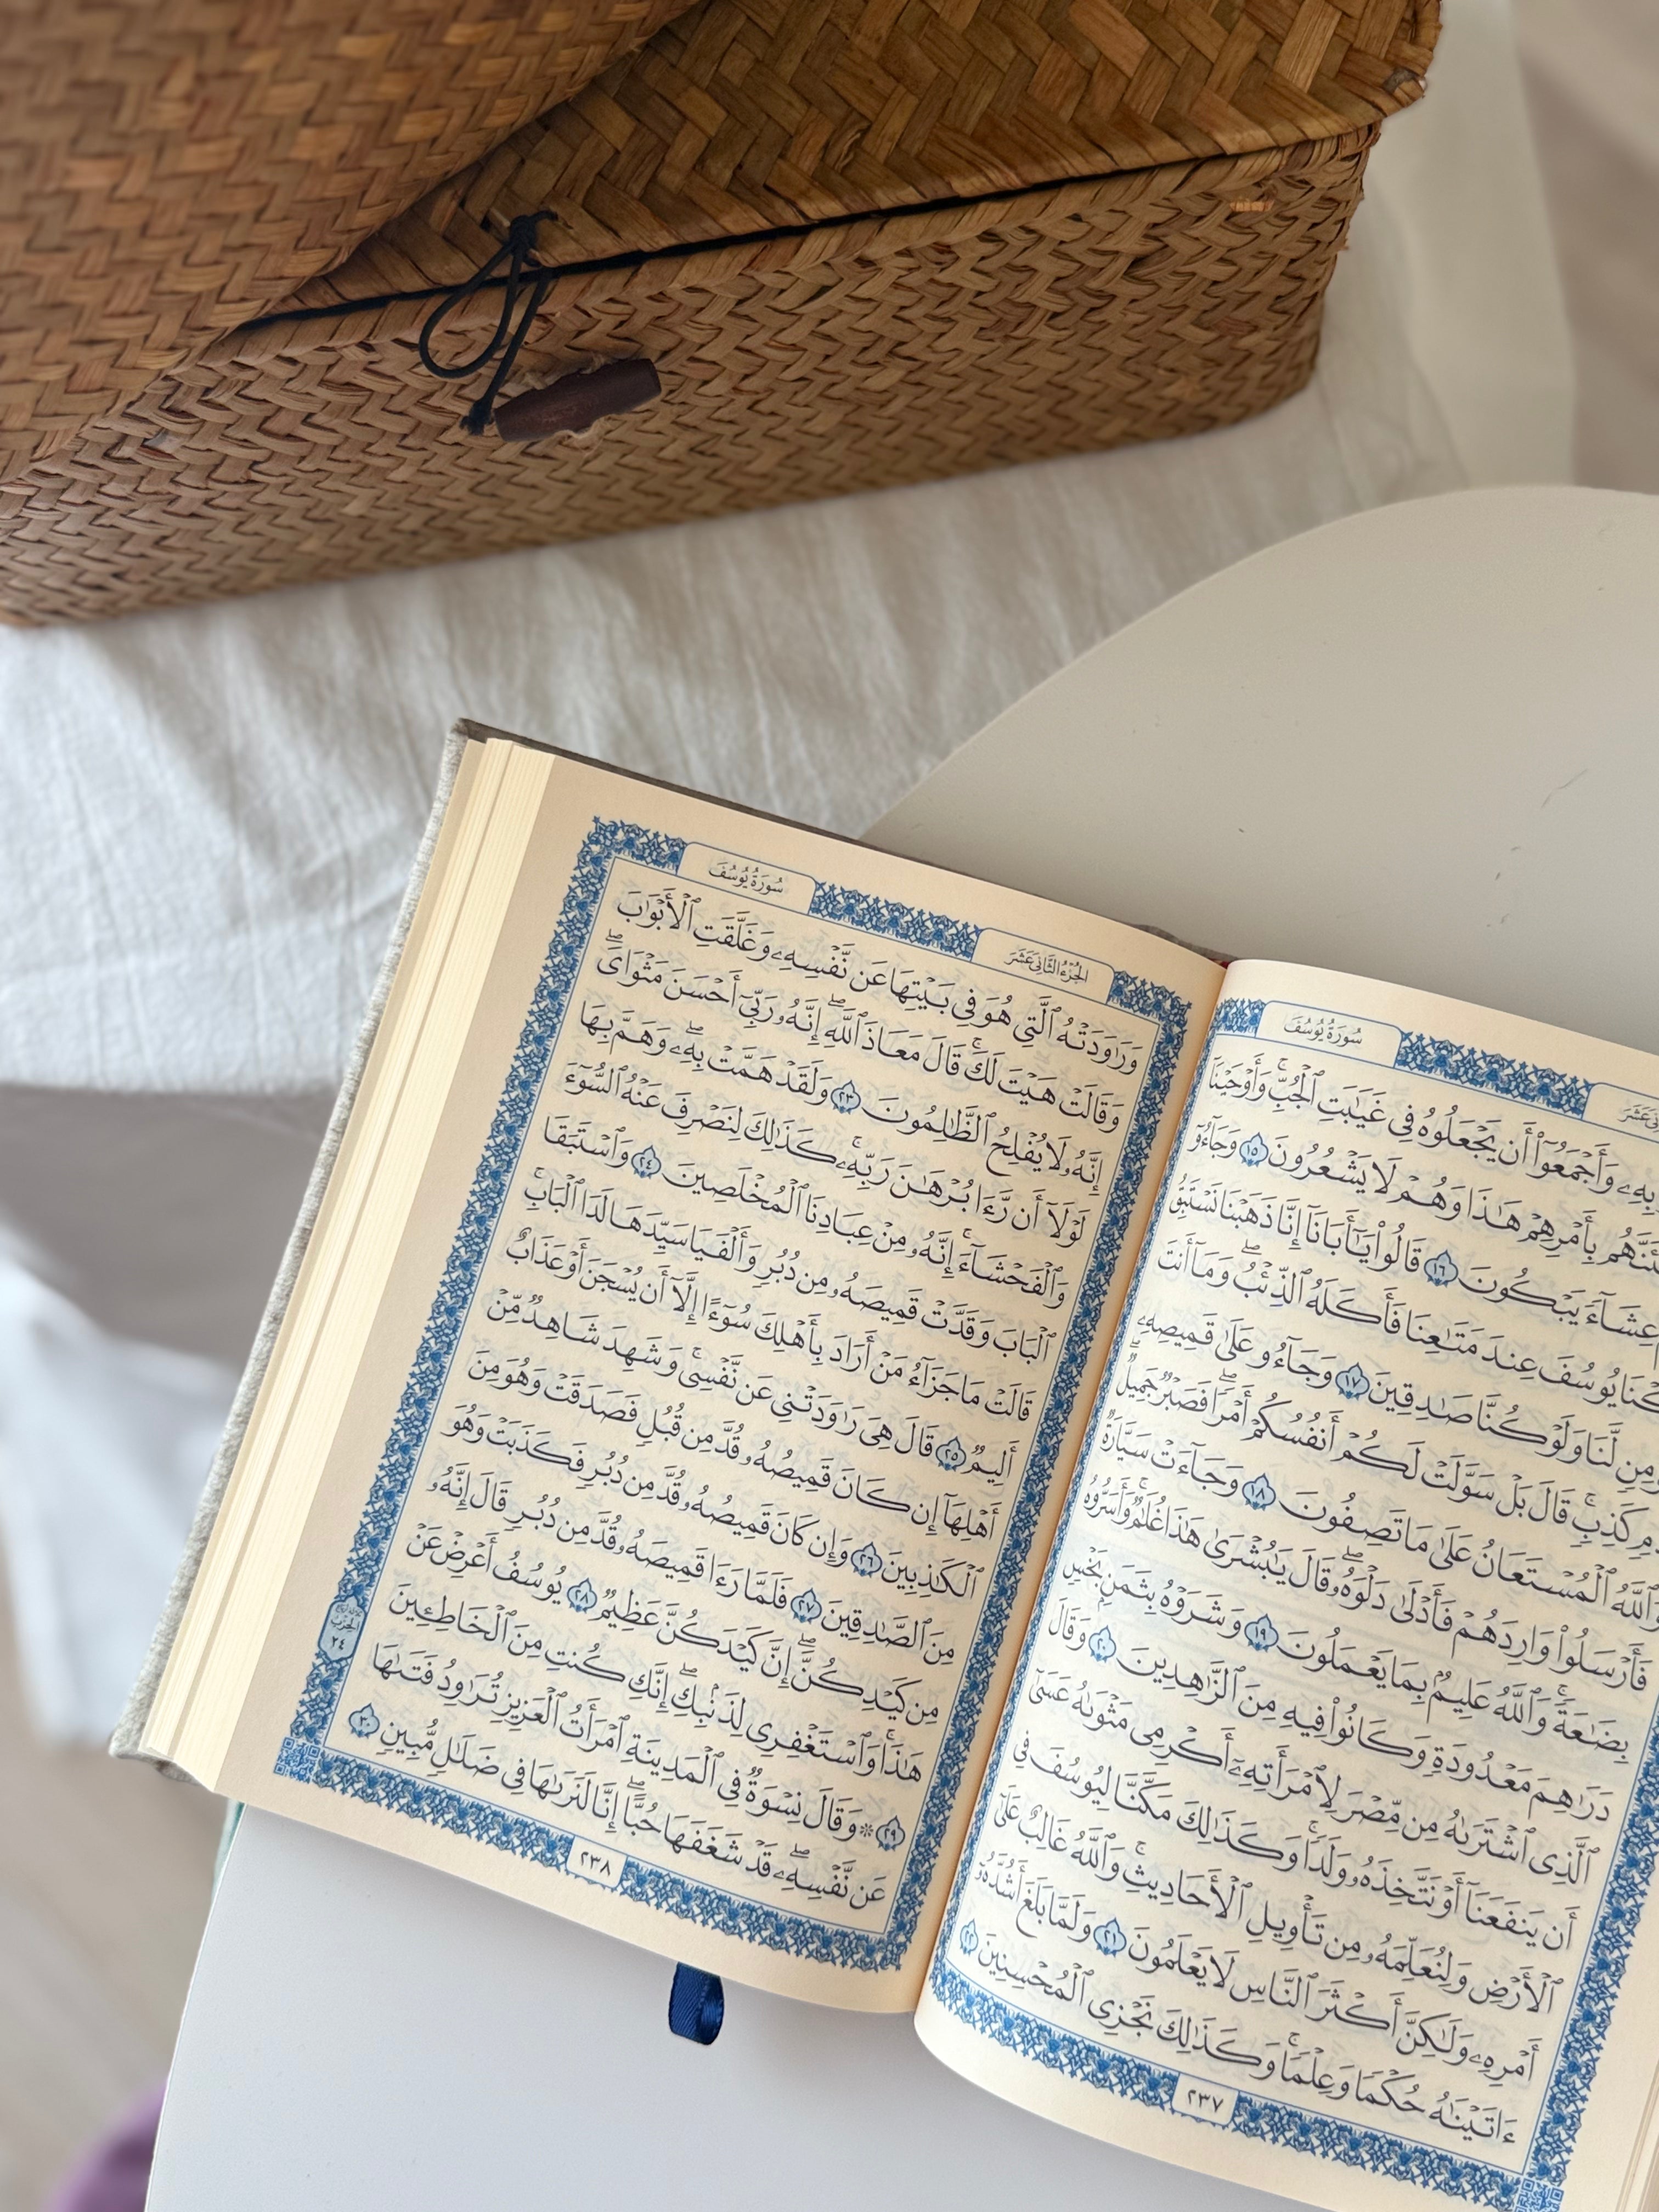 سُورَةُ يُوسُفَ
بِهِۦ وَأَجْمَعُوٓا۟ أَن يَجْعَلُوهُ فِى غَيَـٰبَتِ ٱلْجُبِّ ۚ وَأَوْحَيْنَآ
بِأَمْرِهِمْ هَـٰذَا وَهُمْ لَا يَشْعُرُونَ ١٥ وَجَآءُوٓ
عِشَآءً يَبْكُونَ ١٦ قَالُوا۟ يَـٰٓأَبَانَآ إِنَّا ذَهَبْنَا نَسْتَبِقُ
يُوسُفَ عِندَ مَتَـٰعِنَا فَأَكَلَهُ ٱلذِّئْبُ ۖ وَمَآ أَنتَ
لَّنَا وَلَوْ كُنَّا صَـٰدِقِينَ ١٧ وَجَآءُو عَلَىٰ قَمِيصِهِۦ
كَذِبٍ ۚ قَالَ بَلْ سَوَّلَتْ لَكُمْ أَنفُسُكُمْ أَمْرًا ۖ فَصَبْرٌ جَمِيلٌ ۖ
وَٱللَّهُ ٱلْمُسْتَعَانُ عَلَىٰ مَا تَصِفُونَ ١٨ وَجَآءَتْ سَيَّارَةٌ
فَأَرْسَلُوا۟ وَارِدَهُمْ فَأَدْلَىٰ دَلْوَهُۥ ۖ قَالَ يَـٰبُشْرَىٰ هَـٰذَا غُلَـٰمٌ ۚ وَأَسَرُّوهُ
بِضَـٰعَةً ۚ وَٱللَّهُ عَلِيمٌۢ بِمَا يَعْمَلُونَ ١٩ وَشَرَوْهُ بِثَمَنٍۭ بَخْسٍ
دَرَٰهِمَ مَعْدُودَةٍ وَكَانُوا۟ فِيهِ مِنَ ٱلزَّٰهِدِينَ ٢٠ وَقَالَ
ٱلَّذِى ٱشْتَرَىٰهُ مِن مِّصْرَ لِٱمْرَأَتِهِۦٓ أَكْرِمِى مَثْوَىٰهُ عَسَىٰٓ
أَن يَنفَعَنَآ أَوْ نَتَّخِذَهُۥ وَلَدًا ۚ وَكَذَٰلِكَ مَكَّنَّا لِيُوسُفَ فِى
ٱلْأَرْضِ وَلِنُعَلِّمَهُۥ مِن تَأْوِيلِ ٱلْأَحَادِيثِ ۚ وَٱللَّهُ غَالِبٌ عَلَىٰٓ
أَمْرِهِۦ وَلَـٰكِنَّ أَكْثَرَ ٱلنَّاسِ لَا يَعْلَمُونَ ٢١ وَلَمَّا بَلَغَ أَشُدَّهُۥٓ
ءَاتَيْنَـٰهُ حُكْمًا وَعِلْمًا ۚ وَكَذَٰلِكَ نَجْزِى ٱلْمُحْسِنِينَ ٢٢
٢٣٧
الجُزْءُ الثَّانِي عَشَرَ
سُورَةُ يُوسُفَ
وَرَٰوَدَتْهُ ٱلَّتِى هُوَ فِى بَيْتِهَا عَن نَّفْسِهِۦ وَغَلَّقَتِ ٱلْأَبْوَٰبَ
وَقَالَتْ هَيْتَ لَكَ ۚ قَالَ مَعَاذَ ٱللَّهِ ۖ إِنَّهُۥ رَبِّىٓ أَحْسَنَ مَثْوَاىَ ۖ
إِنَّهُۥ لَا يُفْلِحُ ٱلظَّـٰلِمُونَ ٢٣ وَلَقَدْ هَمَّتْ بِهِۦ ۖ وَهَمَّ بِهَا
لَوْلَآ أَن رَّءَا بُرْهَـٰنَ رَبِّهِۦ ۚ كَذَٰلِكَ لِنَصْرِفَ عَنْهُ ٱلسُّوٓءَ
وَٱلْفَحْشَآءَ ۚ إِنَّهُۥ مِنْ عِبَادِنَا ٱلْمُخْلَصِينَ ٢٤ وَٱسْتَبَقَا
ٱلْبَابَ وَقَدَّتْ قَمِيصَهُۥ مِن دُبُرٍ وَأَلْفَيَا سَيِّدَهَا لَدَا ٱلْبَابِ ۚ
قَالَتْ مَا جَزَآءُ مَنْ أَرَادَ بِأَهْلِكَ سُوٓءًا إِلَّآ أَن يُسْجَنَ أَوْ عَذَابٌ
أَلِيمٌ ٢٥ قَالَ هِىَ رَٰوَدَتْنِى عَن نَّفْسِى ۚ وَشَهِدَ شَاهِدٌ مِّنْ
أَهْلِهَآ إِن كَانَ قَمِيصُهُۥ قُدَّ مِن قُبُلٍ فَصَدَقَتْ وَهُوَ مِنَ
ٱلْكَـٰذِبِينَ ٢٦ وَإِن كَانَ قَمِيصُهُۥ قُدَّ مِن دُبُرٍ فَكَذَبَتْ وَهُوَ
مِنَ ٱلصَّـٰدِقِينَ ٢٧ فَلَمَّا رَءَا قَمِيصَهُۥ قُدَّ مِن دُبُرٍ قَالَ إِنَّهُۥ
مِن كَيْدِكُنَّ ۖ إِنَّ كَيْدَكُنَّ عَظِيمٌ ٢٨ يُوسُفُ أَعْرِضْ عَنْ
هَـٰذَا ۚ وَٱسْتَغْفِرِى لِذَنۢبِكِ ۖ إِنَّكِ كُنتِ مِنَ ٱلْخَاطِـِٔينَ
٢٩ ۞ وَقَالَ نِسْوَةٌ فِى ٱلْمَدِينَةِ ٱمْرَأَتُ ٱلْعَزِيزِ تُرَٰوِدُ فَتَىٰهَا
عَن نَّفْسِهِۦ ۖ قَدْ شَغَفَهَا حُبًّا ۖ إِنَّا لَنَرَىٰهَا فِى ضَلَـٰلٍ مُّبِينٍ ٣٠
الحزب
٢٤
٢٣٨